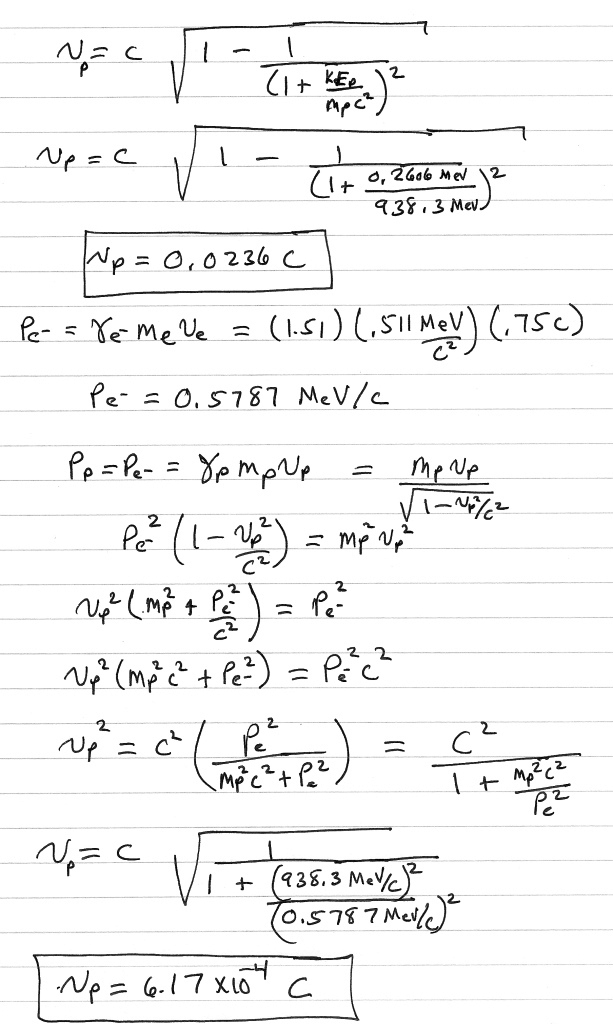 v_p = c √(1 - 1/(1 + KE_p/m_pc²)²)
v_p = c √(1 - 1/(1 + 0.2606 MeV/938.3 MeV)²)
v_p = 0.0236 c
P_e- = γ_e- m_e v_e = (1.51) (.511 MeV/c²) (.75c)
P_e- = 0.5787 MeV/c
P_p = P_e- = γ_p m_p v_p = m_p v_p/√(1 - v_p²/c²)
P_e-² (1 - v_p²/c²) = m_p² v_p²
v_p² (m_p² + P_e-²/c²) = P_e-²
v_p² (m_p² c² + P_e-²) = P_e-² c²
v_p² = c² (P_e²/(m_p² c² + P_e²)) = c²/(1 + m_p² c²/P_e²)
v_p = c √(1/(1 + (938.3 MeV/c)²/(0.5787 MeV/c)²))
v_p = 6.17 x10⁻⁴ c